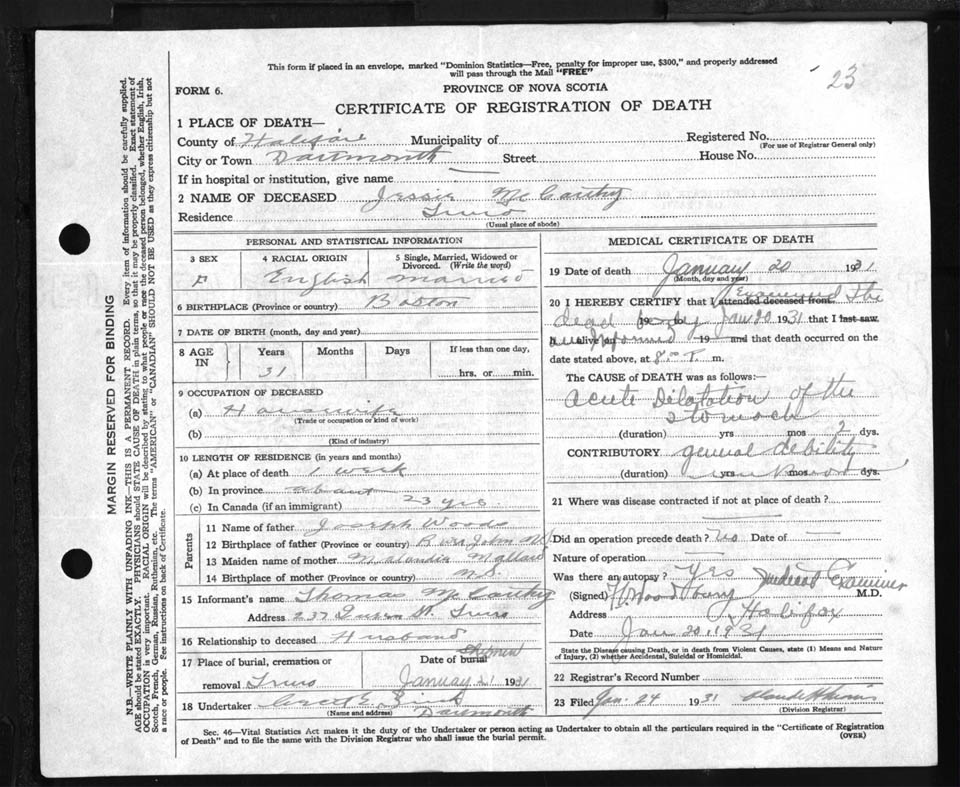 This form if placed in an envelope, marked "Dominion Statistics—Free, penalty for improper use, $300," and properly addressed
will pass through the Mail "FREE"
23
FORM 6.
PROVINCE OF NOVA SCOTIA
CERTIFICATE OF REGISTRATION OF DEATH
1 PLACE OF DEATH—
County of Halifax Municipality of Registered No.
(For use of Registrar General only)
City or Town Dartmouth Street House No.
If in hospital or institution, give name —
2 NAME OF DECEASED Jessie McCarthy
Residence Truro
(Usual place of abode)
MARGIN RESERVED FOR BINDING
N.B.—WRITE PLAINLY WITH UNFADING INK—THIS IS A PERMANENT RECORD. Every item of information should be carefully supplied.
AGE should be stated EXACTLY. PHYSICIANS should STATE CAUSE OF DEATH in plain terms, so that it may be properly classified. Exact statement of
OCCUPATION is very important. RACIAL ORIGIN will be described by stating to what people or race the deceased person belonged, whether English, Irish,
Scotch, French, German, Russian, Ruthenian, etc. The terms "AMERICAN" or "CANADIAN" SHOULD NOT BE USED as they express citizenship but not
a race or people. See instructions on back of Certificate.
PERSONAL AND STATISTICAL INFORMATION
3 SEX 4 RACIAL ORIGIN 5 Single, Married, Widowed or
Divorced. (Write the word)
F English Married
6 BIRTHPLACE (Province or country) Boston
7 DATE OF BIRTH (month, day and year)
8 AGE IN Years Months Days If less than one day,
31 hrs. or min.
9 OCCUPATION OF DECEASED
(a) Housewife
(Trade or occupation or kind of work)
(b)
(Kind of industry)
10 LENGTH OF RESIDENCE (in years and months)
(a) At place of death 1 week
(b) In province about
(c) In Canada (if an immigrant) 23 yrs
Parents
11 Name of father Joseph Woods
12 Birthplace of father (Province or country) River John N.S.
13 Maiden name of mother
14 Birthplace of mother (Province or country) N.S.
15 Informant's name Thomas McCarthy
Address 237 Queen St. Truro
16 Relationship to deceased Husband
17 Place of burial, cremation or Date of burial
removal Truro January 21 1931
18 Undertaker
(Name and address) Dartmouth
MEDICAL CERTIFICATE OF DEATH
19 Date of death January 20 1931
(Month, day and year)
20 I HEREBY CERTIFY that I attended deceased from Examined the
dead body Jan 20 1931 that I last saw
h alive on 19 and that death occurred on
date stated above, at 8 m.
The CAUSE of DEATH was as follows:—
Acute Dilatation of the
stomach
(duration) yrs mos 2 dys.
CONTRIBUTORY general debility
(duration) yrs mos dys.
21 Where was disease contracted if not at place of death? —
Did an operation precede death? No Date of —
Nature of operation —
Was there an autopsy? Yes Medical Examiner
(Signed) M.D.
Address Halifax
Date Jan 20, 1931
State the Disease causing Death, or in death from Violent Causes, state (1) Means and Nature
of Injury, (2) whether Accidental, Suicidal or Homicidal.
22 Registrar's Record Number
23 Filed Jan. 24 1931
(Division Registrar)
Sec. 46—Vital Statistics Act makes it the duty of the Undertaker or person acting as Undertaker to obtain all the particulars required in the "Certificate of Registration
of Death" and to file the same with the Division Registrar who shall issue the burial permit. (OVER)